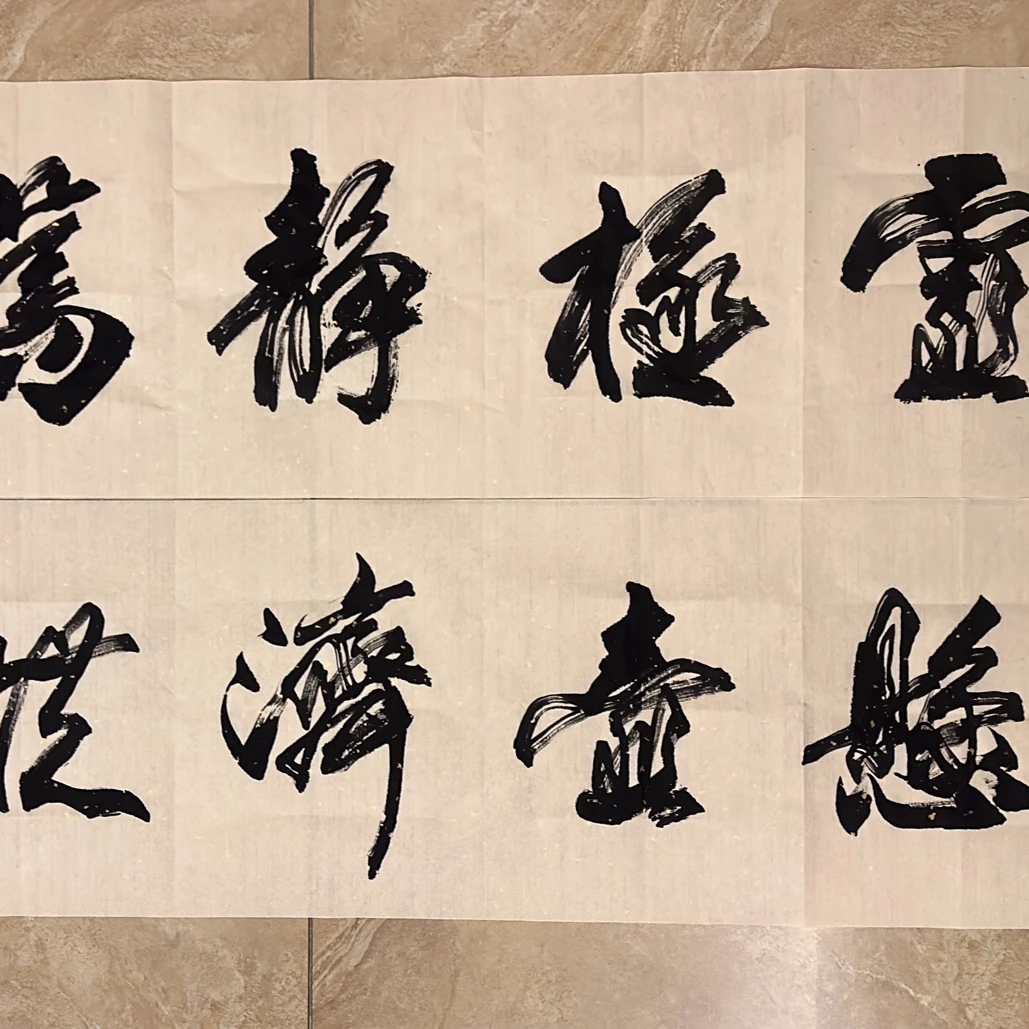 虛極靜篤
懸壺濟世